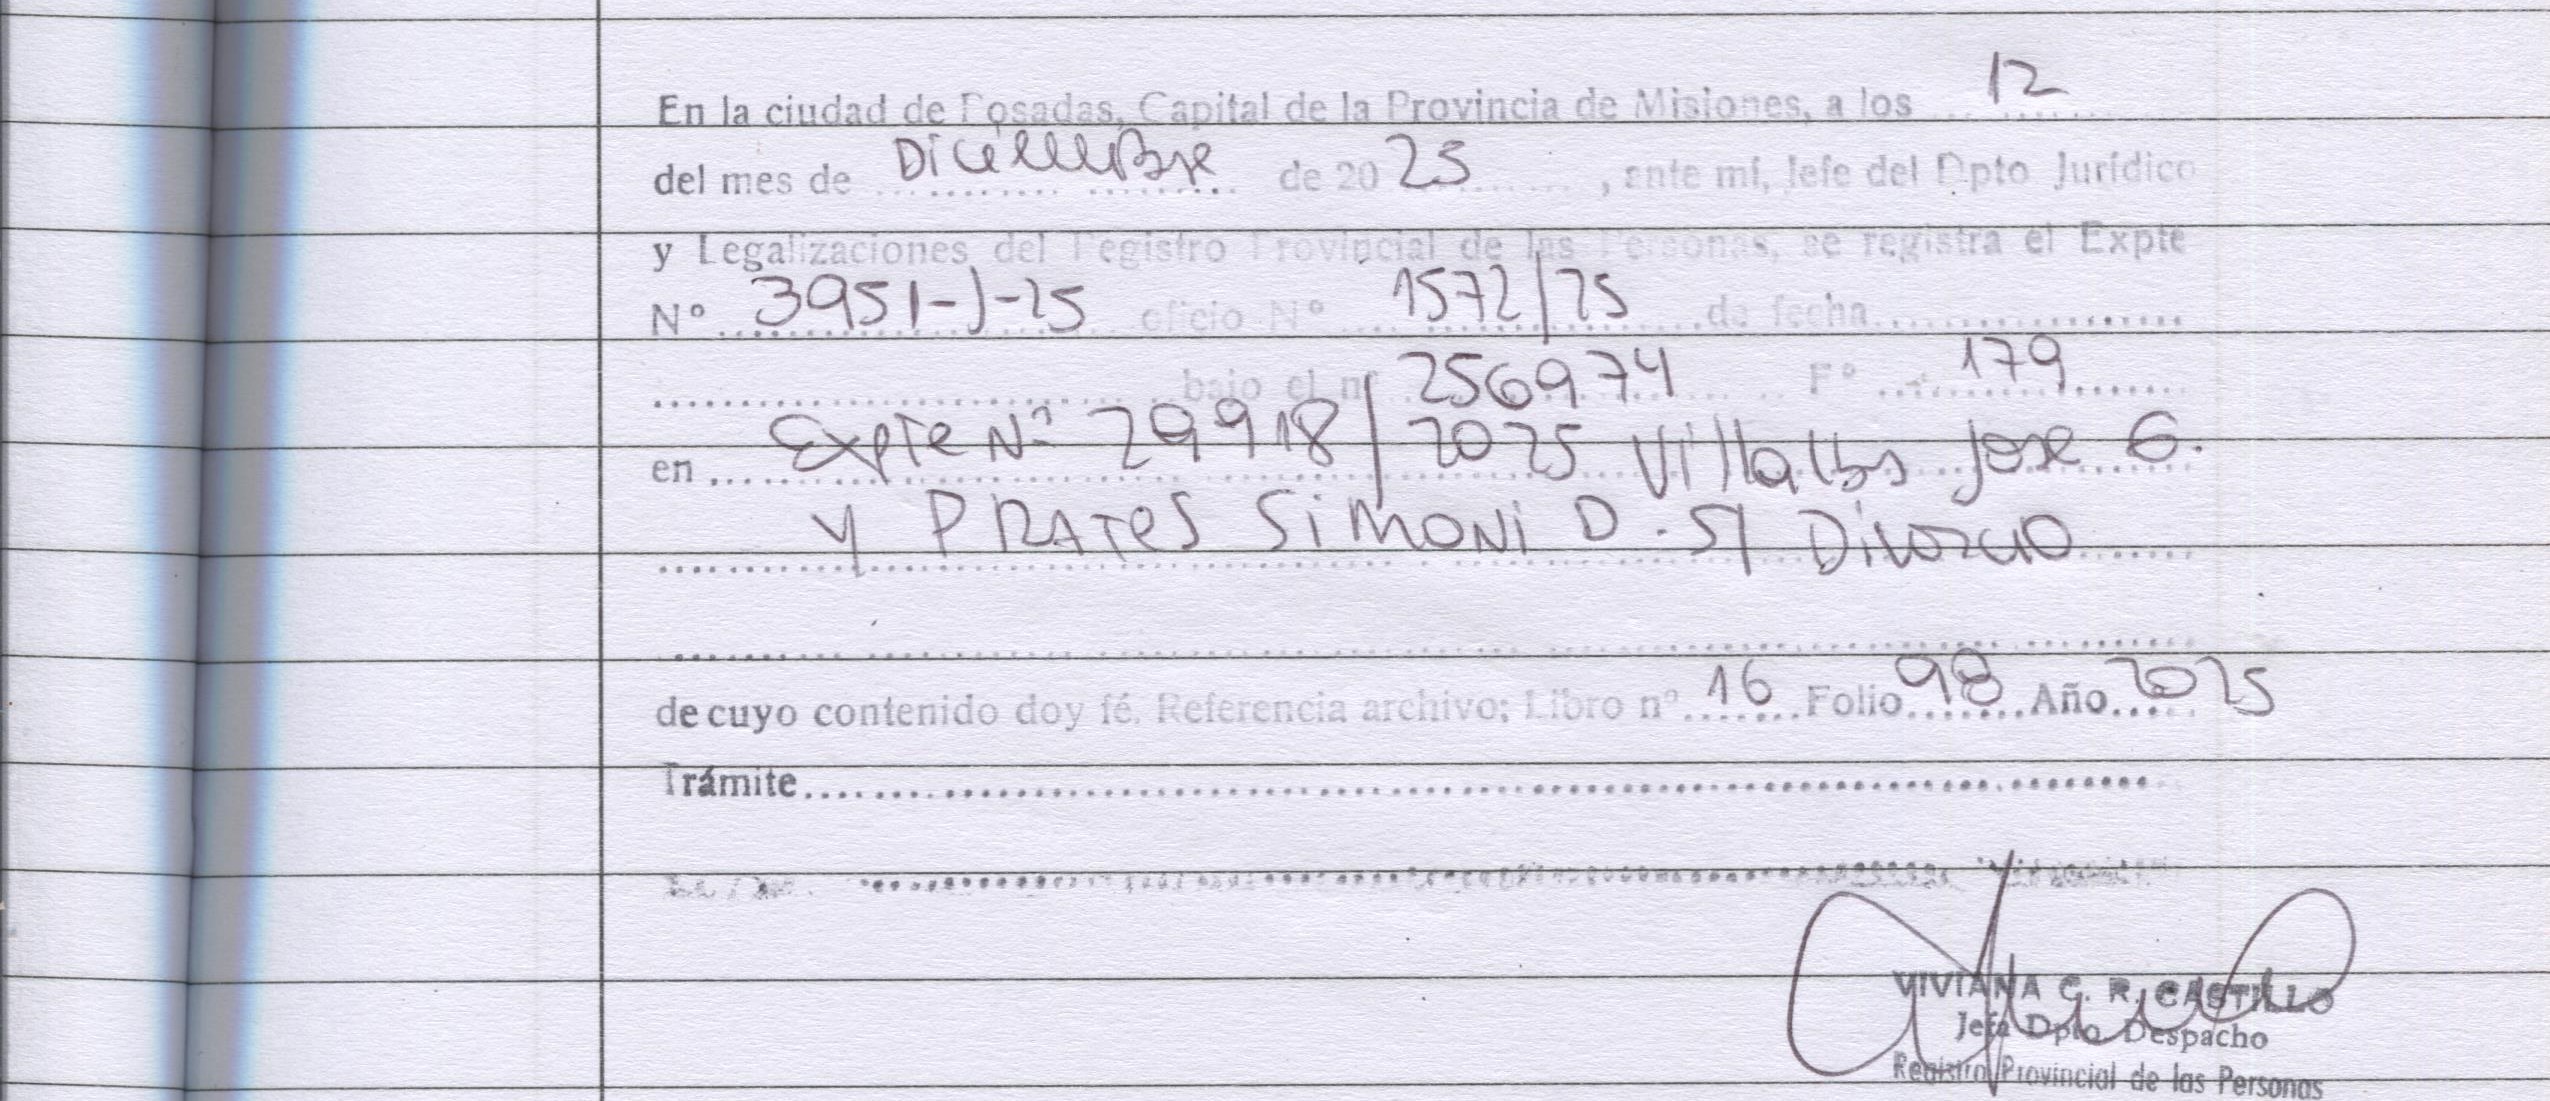 En la ciudad de Posadas, Capital de la Provincia de Misiones, a los 12
del mes de Diciembre de 2025, ante mí, Jefe del Dpto Jurídico
y Legalizaciones del Registro Provincial de las Personas, se registra el Expte
Nº 3951-J-25 oficio Nº 1572/25 de fecha
bajo el nº 256974 Fº 179
en Expte Nº 29918/2025 Villalba Jose G.
y PRATES SIMONI D. S/ Divorcio
de cuyo contenido doy fé. Referencia archivo; Libro nº 16 Folio 98 Año 2025
Trámite
VIVIANA C. R. CASTILLO
Jefa Dpto Despacho
Registro Provincial de las Personas